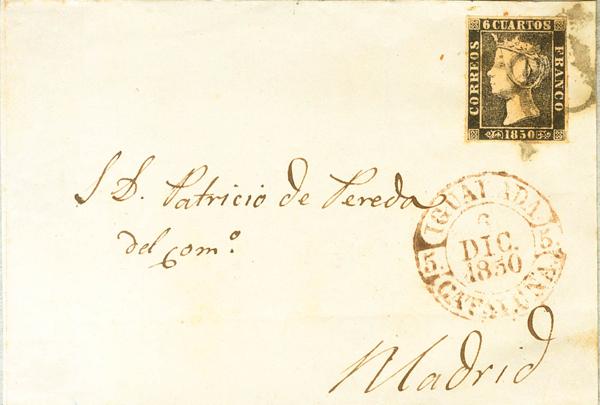 6 CUARTOS
CORREOS
FRANCO
1850
S D. Patricio de Pereda
del comº.
Madrid
IGUALADA
6
DIC.
1850
5
5
CATALUÑA